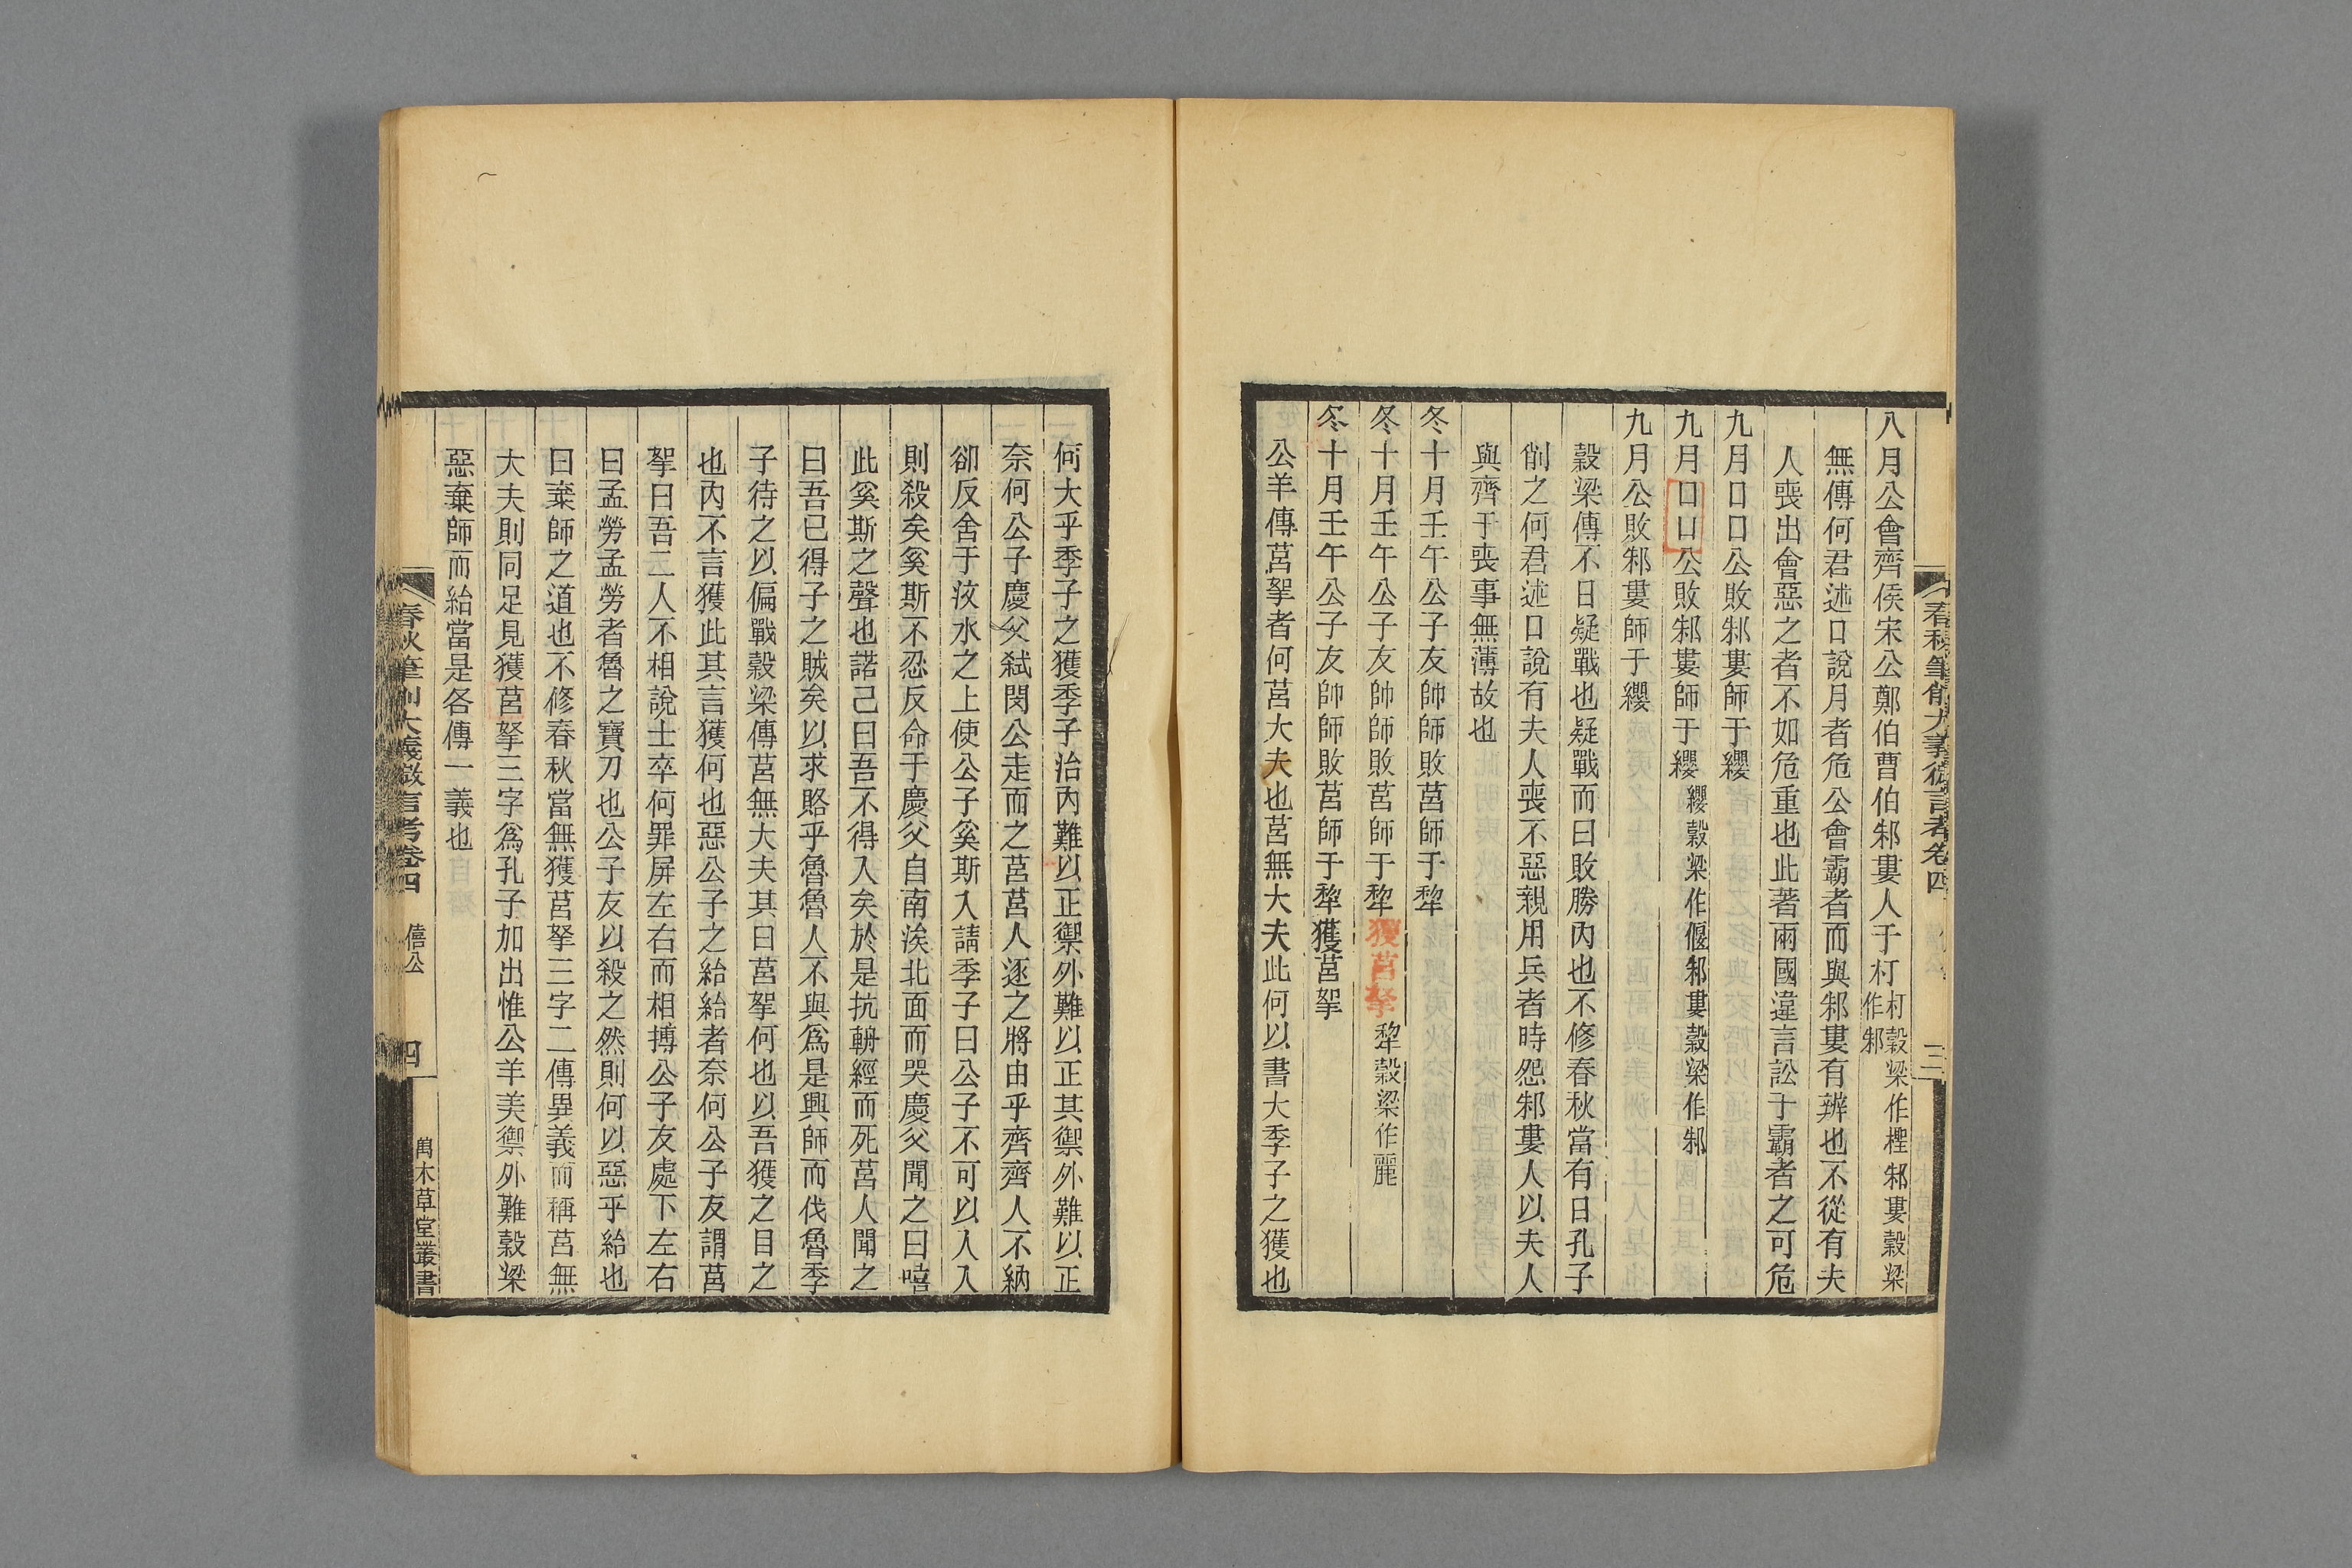 春秋筆削大義微言考卷四
三
八月公會齊侯宋公鄭伯曹伯邾婁人于朾朾穀梁作檉邾婁穀梁作邾
無傳何君述口說月者危公會霸者而與邾婁有辨也不從有夫
人喪出會惡之者不如危重也此著兩國違言訟于霸者之可危
九月口口公敗邾婁師于纓
九月口口公敗邾婁師于纓纓穀梁作偃邾婁穀梁作邾
九月公敗邾婁師于纓
穀梁傳不日疑戰也疑戰而曰敗勝內也不修春秋當有日孔子
削之何君述口說有夫人喪不惡親用兵者時怨邾婁人以夫人
與齊于喪事無薄故也
冬十月壬午公子友帥師敗莒師于犂
冬十月壬午公子友帥師敗莒師于犂獲莒挐犂穀梁作麗
冬十月壬午公子友帥師敗莒師于犂獲莒挐
公羊傳莒挐者何莒大夫也莒無大夫此何以書大季子之獲也
何大乎季子之獲季子治內難以正禦外難以正其禦外難以正
奈何公子慶父弒閔公走而之莒莒人逐之將由乎齊齊人不納
卻反舍于汶水之上使公子奚斯入請季子曰公子不可以入入
則殺矣奚斯不忍反命于慶父自南涘北面而哭慶父聞之曰嘻
此奚斯之聲也諾己曰吾不得入矣於是抗輈經而死莒人聞之
曰吾已得子之賊矣以求賂乎魯魯人不與為是興師而伐魯季
子待之以偏戰穀梁傳莒無大夫其曰莒挐何也以吾獲之目之
也內不言獲此其言獲何也惡公子之紿紿者奈何公子友謂莒
挐曰吾二人不相說士卒何罪屏左右而相搏公子友處下左右
曰孟勞孟勞者魯之寶刀也公子友以殺之然則何以惡乎紿也
曰棄師之道也不修春秋當無獲莒挐三字二傳異義而稱莒無
大夫則同足見獲莒挐三字為孔子加出惟公羊美禦外難穀梁
惡棄師而紿當是各傳一義也
春秋筆削大義微言考卷四
僖公
四
萬木草堂叢書